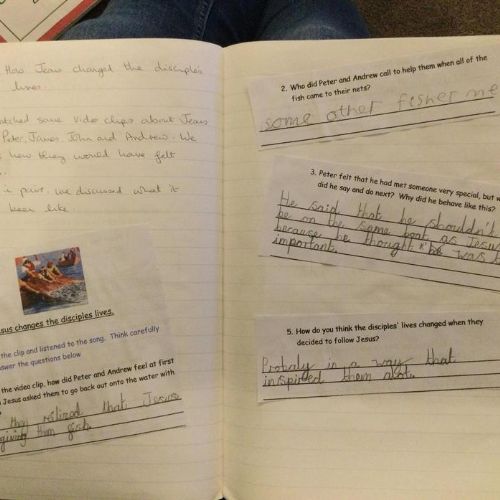 How Jesus changed the disciple's
lives.
watched some video clips about Jesus
Peter, James, John and Andrew. We
how they would have felt
in pairs, we discussed what it
been like.
Jesus changes the disciples lives.
the clip and listened to the song. Think carefully
answer the questions below
the video clip, how did Peter and Andrew feel at first
Jesus asked them to go back out onto the water with
they relized that Jesus
giving them
2. Who did Peter and Andrew call to help them when all of the
fish came to their nets?
some other fisher me
3. Peter felt that he had met someone very special, but w
did he say and do next? Why did he behave like this?
He said that he shouldn't
be on the same boat as Jesus
because he thought he was
important.
5. How do you think the disciples' lives changed when they
decided to follow Jesus?
Probaly in a way that
inspired them alot.